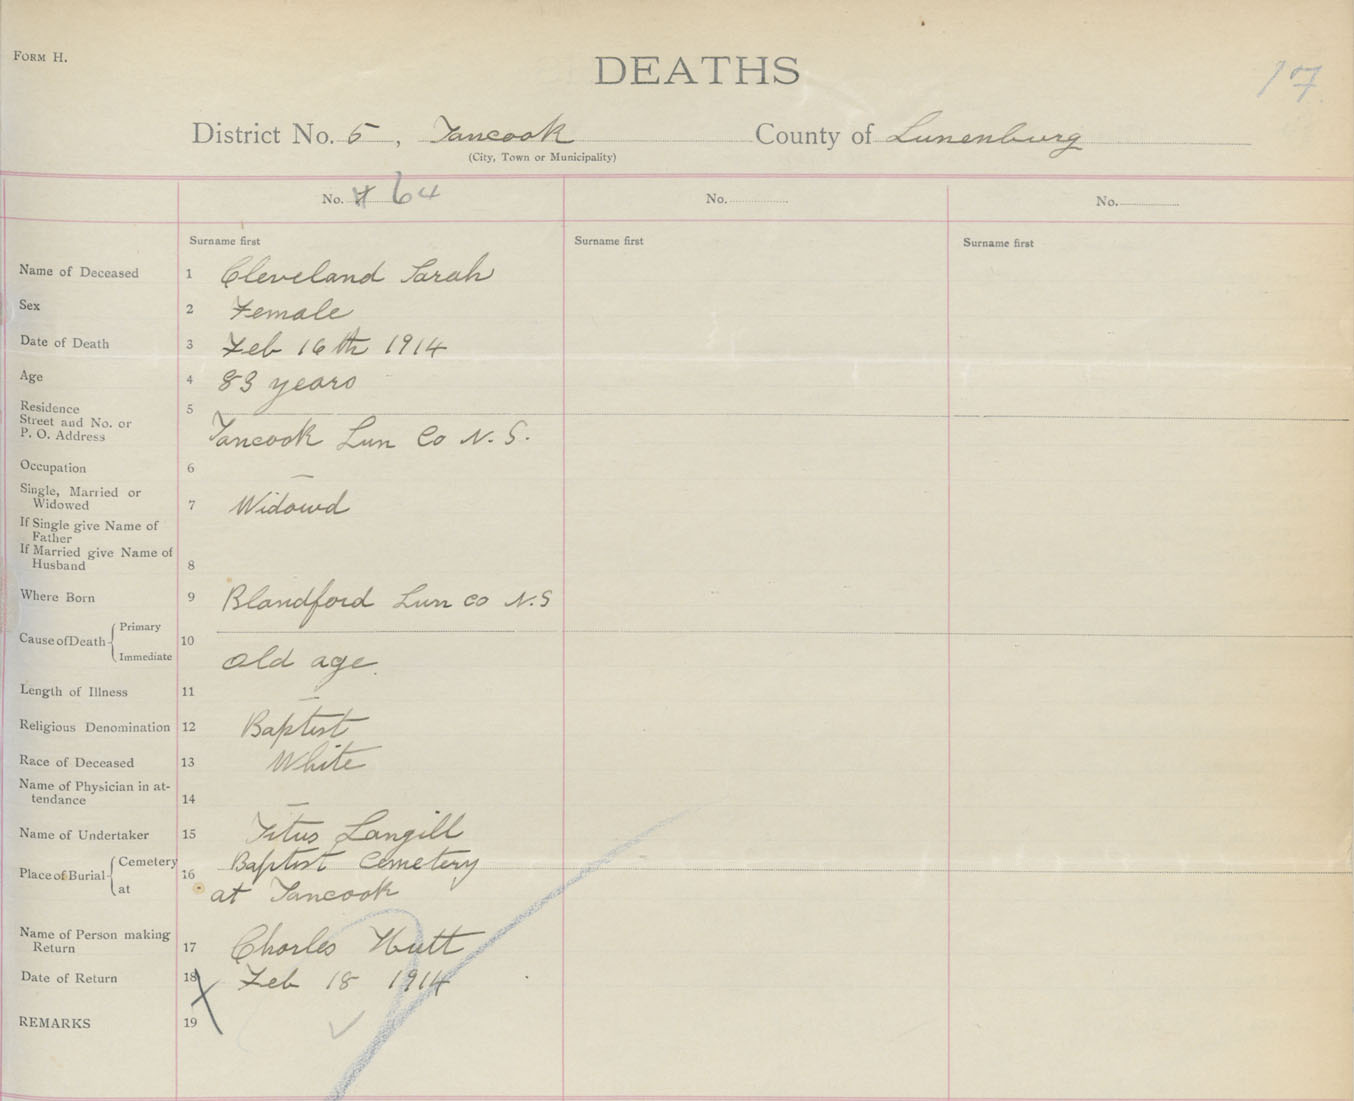 FORM H.
DEATHS
17
District No. 5, Tancook County of Lunenburg
(City, Town or Municipality)
No. 64
No.
No.
Surname first
Surname first
Surname first
Name of Deceased 1 Cleveland Sarah
Sex 2 Female
Date of Death 3 Feb 16th 1914
Age 4 83 years
Residence 5
Street and No. or
P. O. Address Tancook Lun Co N. S.
Occupation 6 —
Single, Married or
Widowed 7 Widowd
If Single give Name of
Father
If Married give Name of
Husband 8
Where Born 9 Blandford Lun co N.S
Cause of Death Primary
10
Immediate Old age.
Length of Illness 11 —
Religious Denomination 12 Baptist
Race of Deceased 13 White
Name of Physician in at-
tendance 14 —
Name of Undertaker 15 Titus Langill
Place of Burial Cemetery 16 Baptist Cemetery
at at Tancook
Name of Person making
Return 17 Charles Hutt
Date of Return 18 Feb 18 1914
REMARKS 19